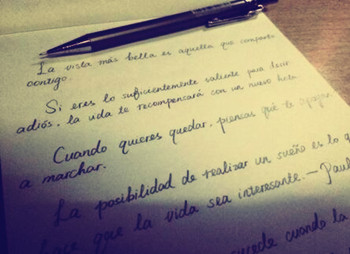 La vista más bella es aquella que comparto
contigo.
Si eres lo suficientemente valiente para decir
adiós, la vida te recompensará con un nuevo hola.
Cuando quieres quedar, piensas que te
a marchar.
La posibilidad de realizar un sueño es lo q
hace que la vida sea interesante. — Paul
uede cuando la